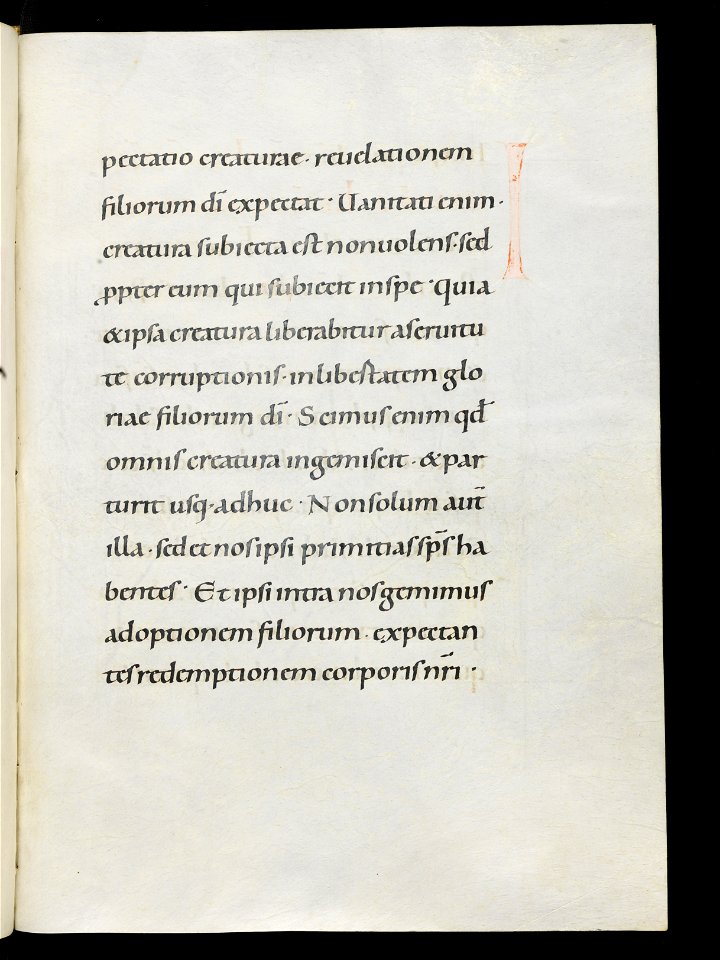 pectatio creaturae · reuelationem
filiorum dī expectat · Uanitati enim ·
creatura subiecta est nonuolens · sed
ꝓpter eum qui subiecit inspe · quia
&ipsa creatura liberabitur aseruitu
te corruptionis · inlibertatem glo
riae filiorum dī · Scimus enim qđ
omnis creatura ingemiscit · &par
turit usq· adhuc · Nonsolum aut̄
illa · sed et nos ipsi primitias sp̄s ha
bentes · Et ipsi intra nos gemimus
adoptionem filiorum · expectan
tes redemptionem corporis nr̄i ·